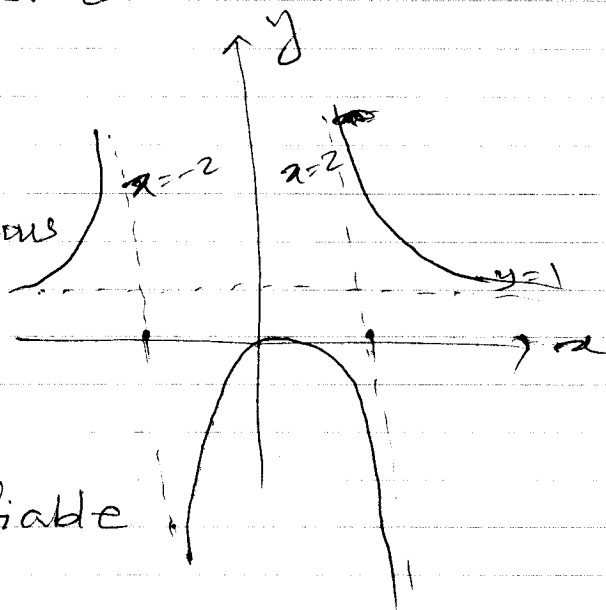 y
x=-2
x=2
ous
y=1
x
iable